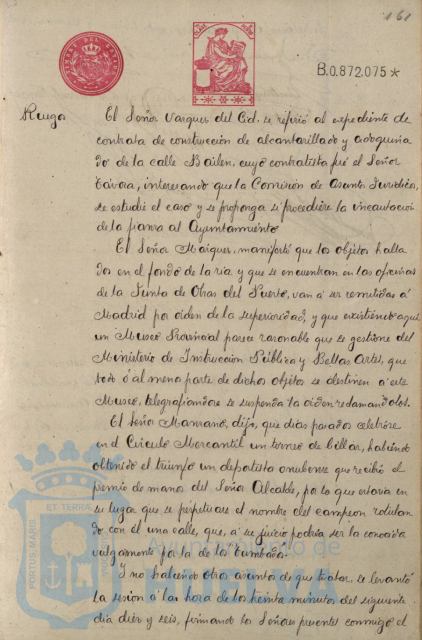 161
TIMBRE DEL ESTADO
B.0.872.075*
Ruegos
El Señor Vargues del Cid, se refirió al expediente de
contrata de construcción de alcantarillado y adoquina
do de la calle Bailen, cuyo contratista fué el Señor
Távora, interesando que la Comisión de Asuntos Juridicos,
se estudie el caso y se proponga si procediere la incautación
de la fianza al Ayuntamiento
El Señor Maigues, manifestó que los objetos halla
dos en el fondo de la ria y que se encuentran en las oficinas
de la Junta de Obras del Puerto, van á ser remitidas á
Madrid por orden de la superioridad, y que existiendo aquí
un Museo Provincial parece razonable que se gestione del
Ministerio de Instrucción Pública y Bellas Artes, que
todo ó al meno parte de dichos objetos se destinen á este
Museo, telegrafiandose se suspenda la orden reclamandolos.
El Señor Manzano, dijo, que dias pasados celebróse
en el Circulo Mercantil un torneo de billar, habiendo
obtenido el triunfo un deportista onubense que recibió el
premio de manos del Señor Alcalde, por lo que estaria en
su lugar que se perpetuase el nombre del campeon rotulan
do con él una calle, que, á su juicio podría ser la conocida
vulgarmente por la de los Tumbados.
Y no habiendo otros asuntos de que tratar, se levantó
la sesion á las hora de los treinta minutos del siguiente
dia diez y seis, firmando los Señores presente conmigo el
PORTUS MARIS
ET TERRÆ
Ayuntamiento de
HUELVA